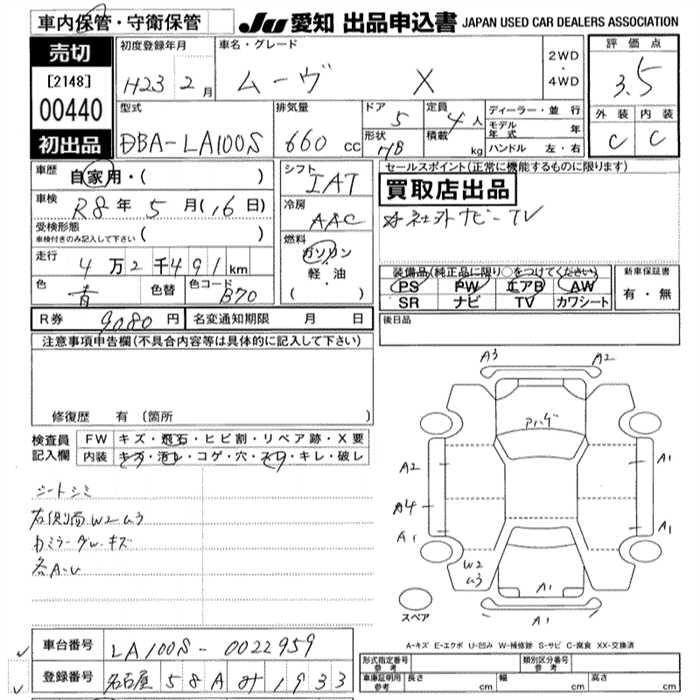 車内保管・守衛保管
JU 愛知 出品申込書 JAPAN USED CAR DEALERS ASSOCIATION
売切
[2148]
00440
初出品
初度登録年月 H23 2月
車名・グレード ムーヴ X
2WD・4WD
評価点
3.5
外装 内装
C C
型式 DBA-LA100S
排気量 660 cc
ドア 5
形状 HB
定員 4人
積載 kg
ディーラー・並行
モデル年式 年
ハンドル 左・右
車歴 自家用・( )
車検 R8年 5月(16日)
受検形態 ( )
車検付きのみ記入して下さい
走行 4万2千491km
色 青 色替 色コード B70
シフト IAT
冷房 AAC
燃料 ガソリン・軽油・( )
セールスポイント(正常に機能するものに限ります)
買取店出品
社外ナビ-TV
装備品(純正品に限り○をつけてください)
PS PW エアB AW
SR ナビ TV カワシート
新車保証書
有・無
R券 9080円 名変通知期限 月 日
後日品
注意事項申告欄(不具合内容等は具体的に記入して下さい)
修復歴 有 〔箇所 〕
検査員記入欄
FW キズ・飛石・ヒビ割・リペア跡・X要
内装 キズ・汚レ・コゲ・穴・スレ・キレ・破レ
シートシミ
右側面W2ムラ
カミラーダw.キズ
各A-U
A3 A2
アハゲ
A2 A1
A4
A1 A1
W2ムラ
A1
A1
スペア
A-キズ E-エクボ U-凹み W-補修跡 S-サビ C-腐食 XX-交換済
車台番号 LA100S-0022959
登録番号 名古屋 58A 1933
形式指定番号 参考 類別区分番号 参考
車庫証明用 参考 長さ cm 幅 cm 高さ cm